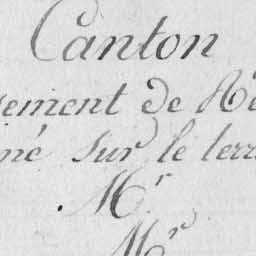 Canton
sement de Re
né sur le terr
Mr
Mr